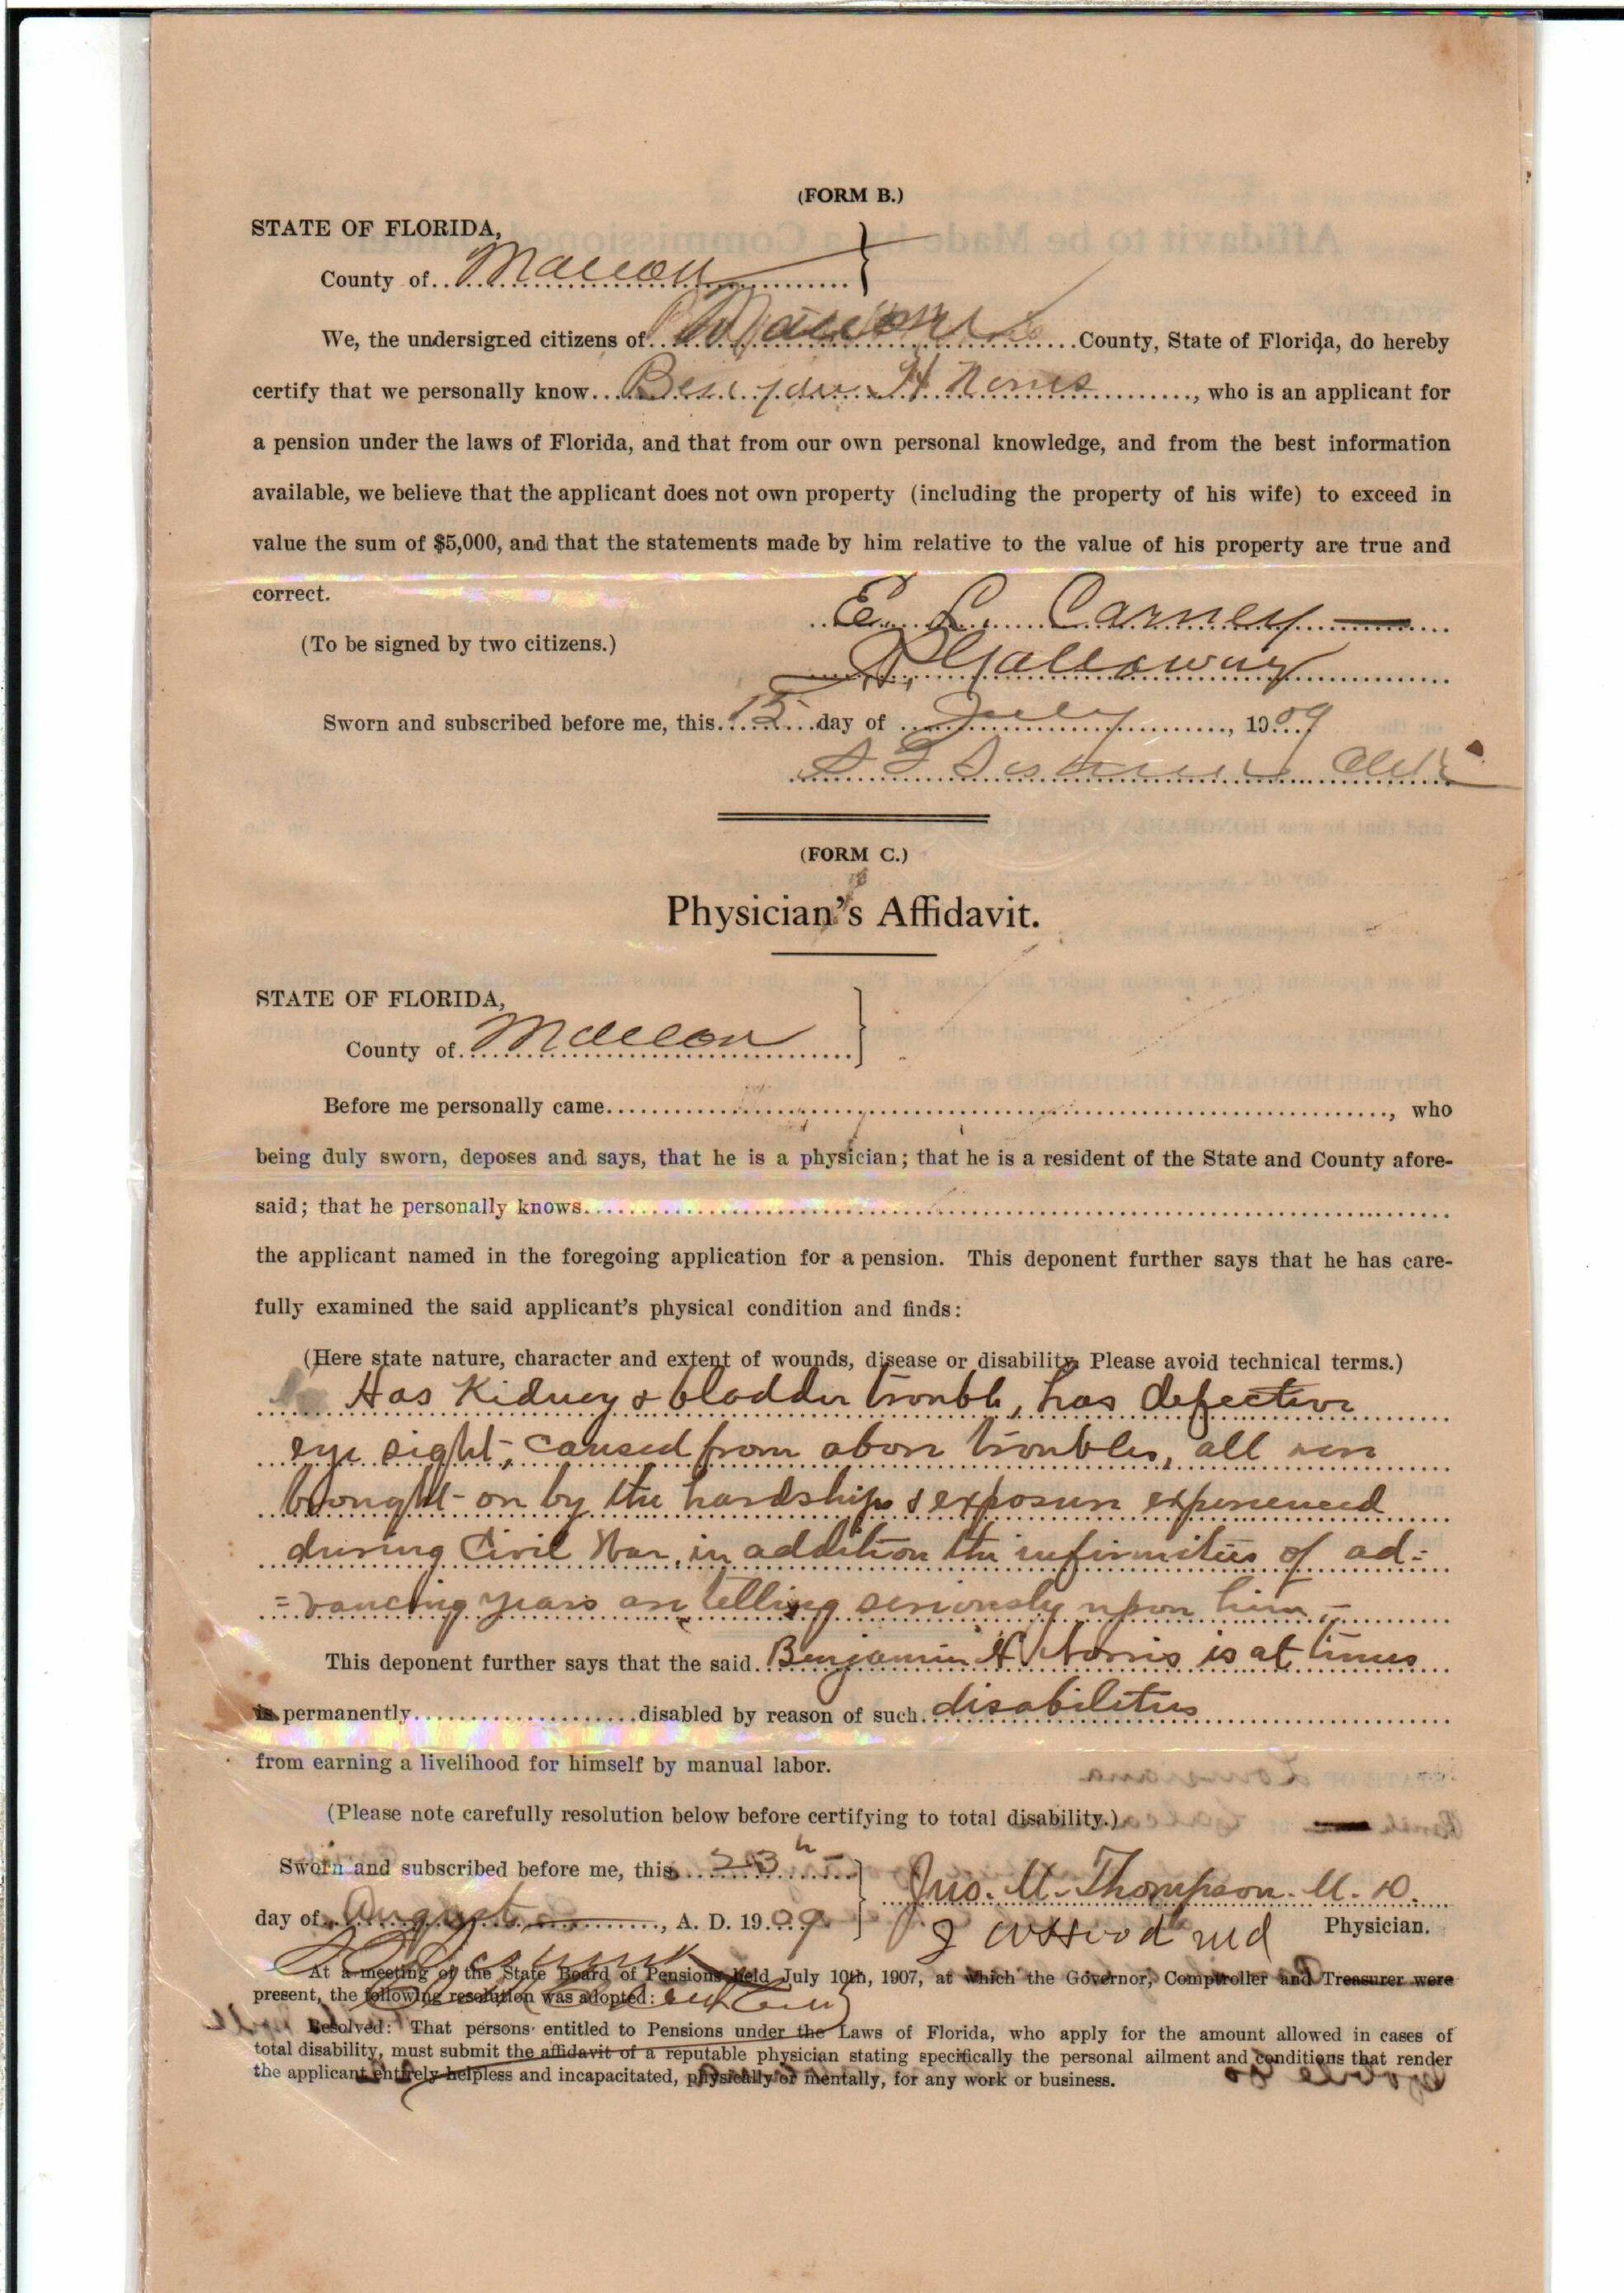 (FORM B.)
STATE OF FLORIDA,
County of Marion
We, the undersigned citizens of Marion County, State of Florida, do hereby
certify that we personally know Benjam H Norris, who is an applicant for
a pension under the laws of Florida, and that from our own personal knowledge, and from the best information
available, we believe that the applicant does not own property (including the property of his wife) to exceed in
value the sum of $5,000, and that the statements made by him relative to the value of his property are true and
correct.
E. L. Carney
(To be signed by two citizens.)
Galloway
Sworn and subscribed before me, this 15 day of July, 1909
Clerk
(FORM C.)
Physician's Affidavit.
STATE OF FLORIDA,
County of Marion
Before me personally came, who
being duly sworn, deposes and says, that he is a physician; that he is a resident of the State and County afore-
said; that he personally knows
the applicant named in the foregoing application for a pension. This deponent further says that he has care-
fully examined the said applicant's physical condition and finds:
(Here state nature, character and extent of wounds, disease or disability. Please avoid technical terms.)
Has Kidney & bladder trouble, has defective
eye sight, caused from above troubles, all were
brought on by the hardships & exposure experienced
during Civil War, in addition the infirmities of ad=
=vancing years are telling seriously upon him,-
This deponent further says that the said Benjamin H Norris is at times
is permanently disabled by reason of such disabilities
from earning a livelihood for himself by manual labor.
(Please note carefully resolution below before certifying to total disability.)
Sworn and subscribed before me, this 23
day of August, A. D. 1909
Jno. M. Thompson. M. D.
Physician.
md
At a meeting of the State Board of Pensions held July 10th, 1907, at which the Governor, Comptroller and Treasurer were
present, the following resolution was adopted:
Resolved: That persons entitled to Pensions under the Laws of Florida, who apply for the amount allowed in cases of
total disability, must submit the affidavit of a reputable physician stating specifically the personal ailment and conditions that render
the applicant entirely helpless and incapacitated, physically or mentally, for any work or business.